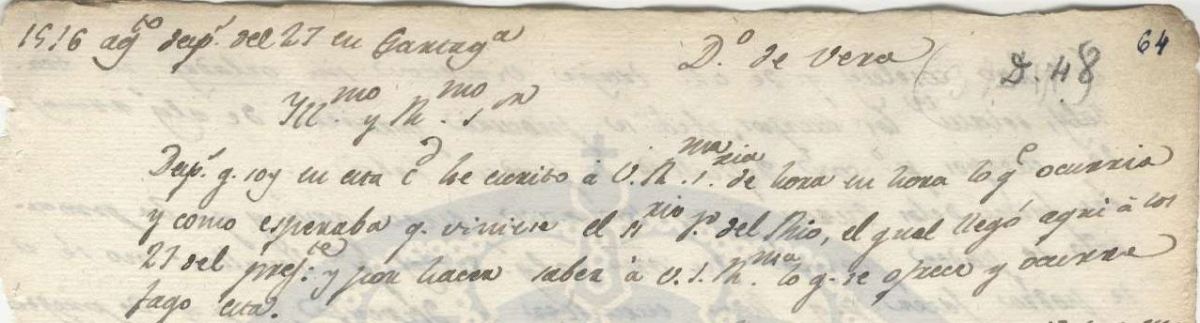 1516 ag.to desp.s del 27 en Cartag.a D.o de Vera 64
D. 48
Ill.mo y R.mo S.or
Desp.s q. soy en esta C.d he escrito à V. R.ma S.ria de hora en hora lo q.e ocurria
y como esperaba q. viniese el S.rio Jo. del Rio, el qual llegó aqui à los
27 del pres.te y por hacer saber à V. S. R.ma lo q. se ofrece y ocurre
fago esta.